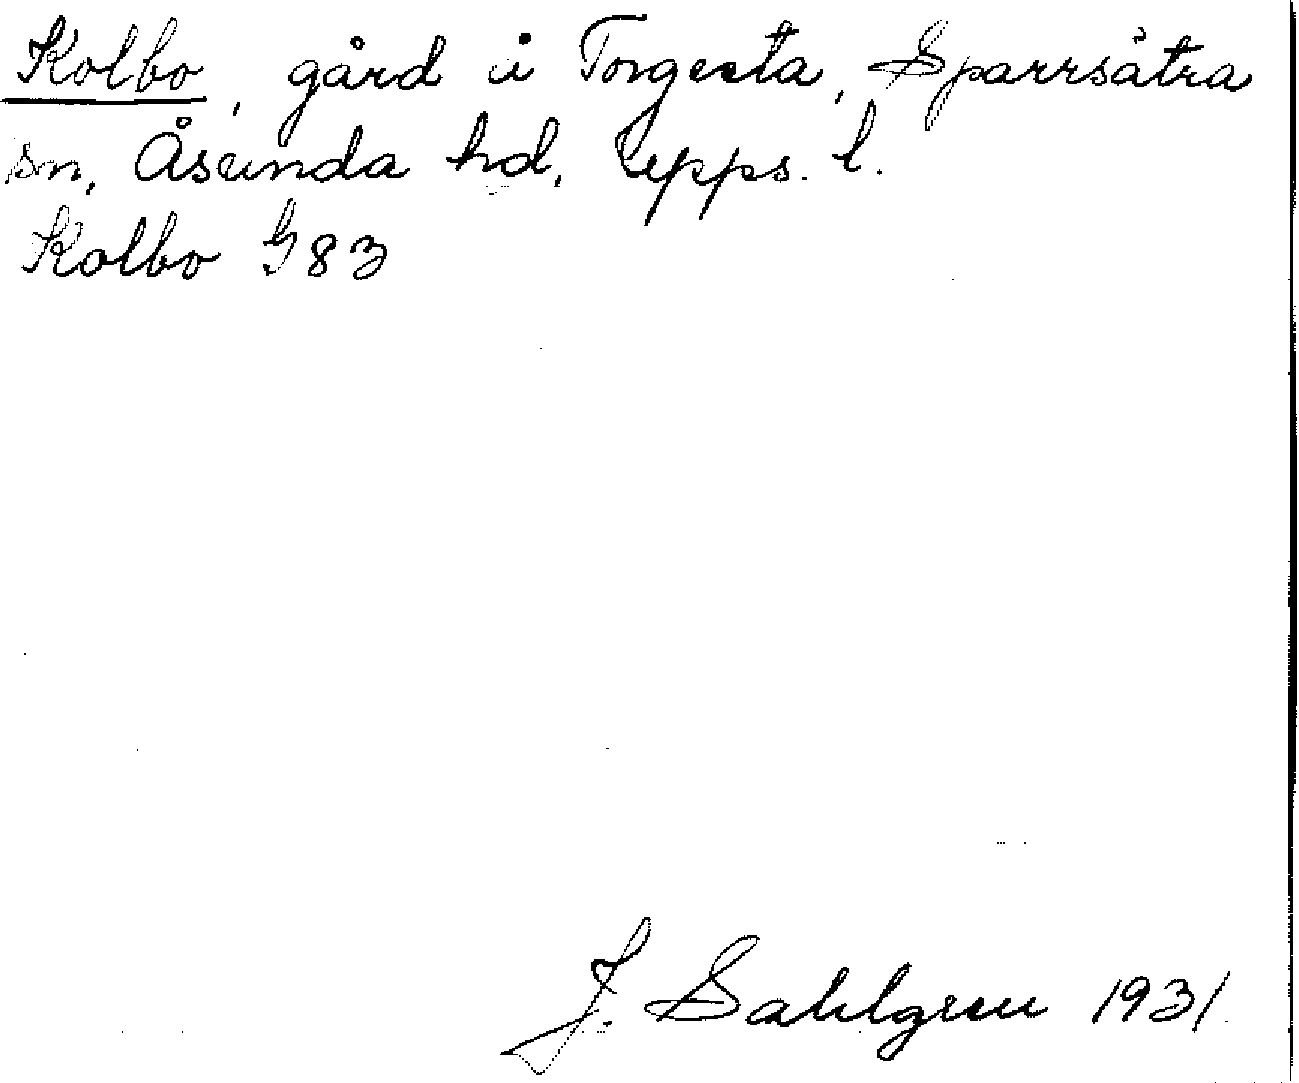 Kolbo, gård å Torgesta, Sparrsätra
sn, Åsunda hd, Upps. l.
Kolbo G83
J. Sahlgren 1931